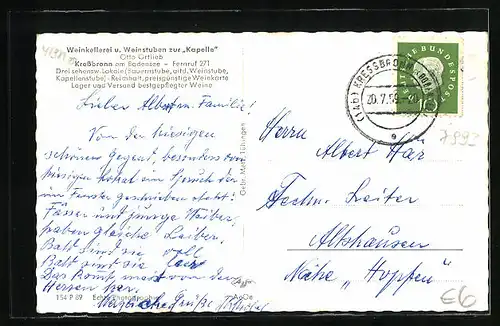 Weinkellerei u. Weinstuben zur „Kapelle"
Otto Ortlieb
Kreßbronn am Bodensee - Fernruf 271
Drei sehensw. Lokale (Bauernstube, altd. Weinstube,
Kapellenstube) - Reichhalt. preisgünstige Weinkarte
Lager und Versand bestgepflegter Weine
Lieber Albert m. Familie!
Von der hiesigen
schönen Gegend, besonders vom
hiesigen Lokal ein Spruch der
im Fenster geschrieben steht!
Fässer und junge Weiber,
haben gleiche Leiber.
Bald sind sie voll
Bald sind sie leer
Das kommt meist von den
Herren her.
Grüße
154 P 89
Gebr. Metz, Tübingen
DEUTSCHE BUNDESPOST
10
(14b) KRESSBRONN (BODENSEE)
20.7.59
a
7993
Herrn
Albert Här
Techn. Leiter
Altshausen
Nähe „Hopfen"
E6